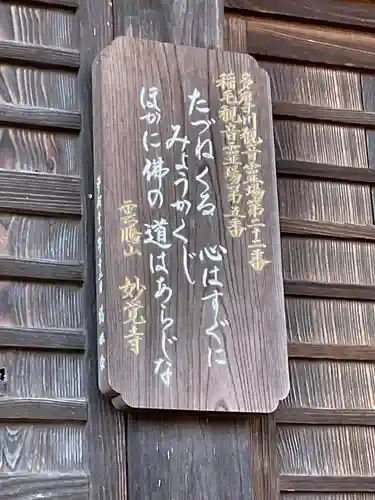 多摩川観音霊場第三十二番
稲毛観音霊場第五番
たづねくる 心はすぐに
みょうかくじ
ほかに佛の道はあらじな
雲騰山 妙覚寺